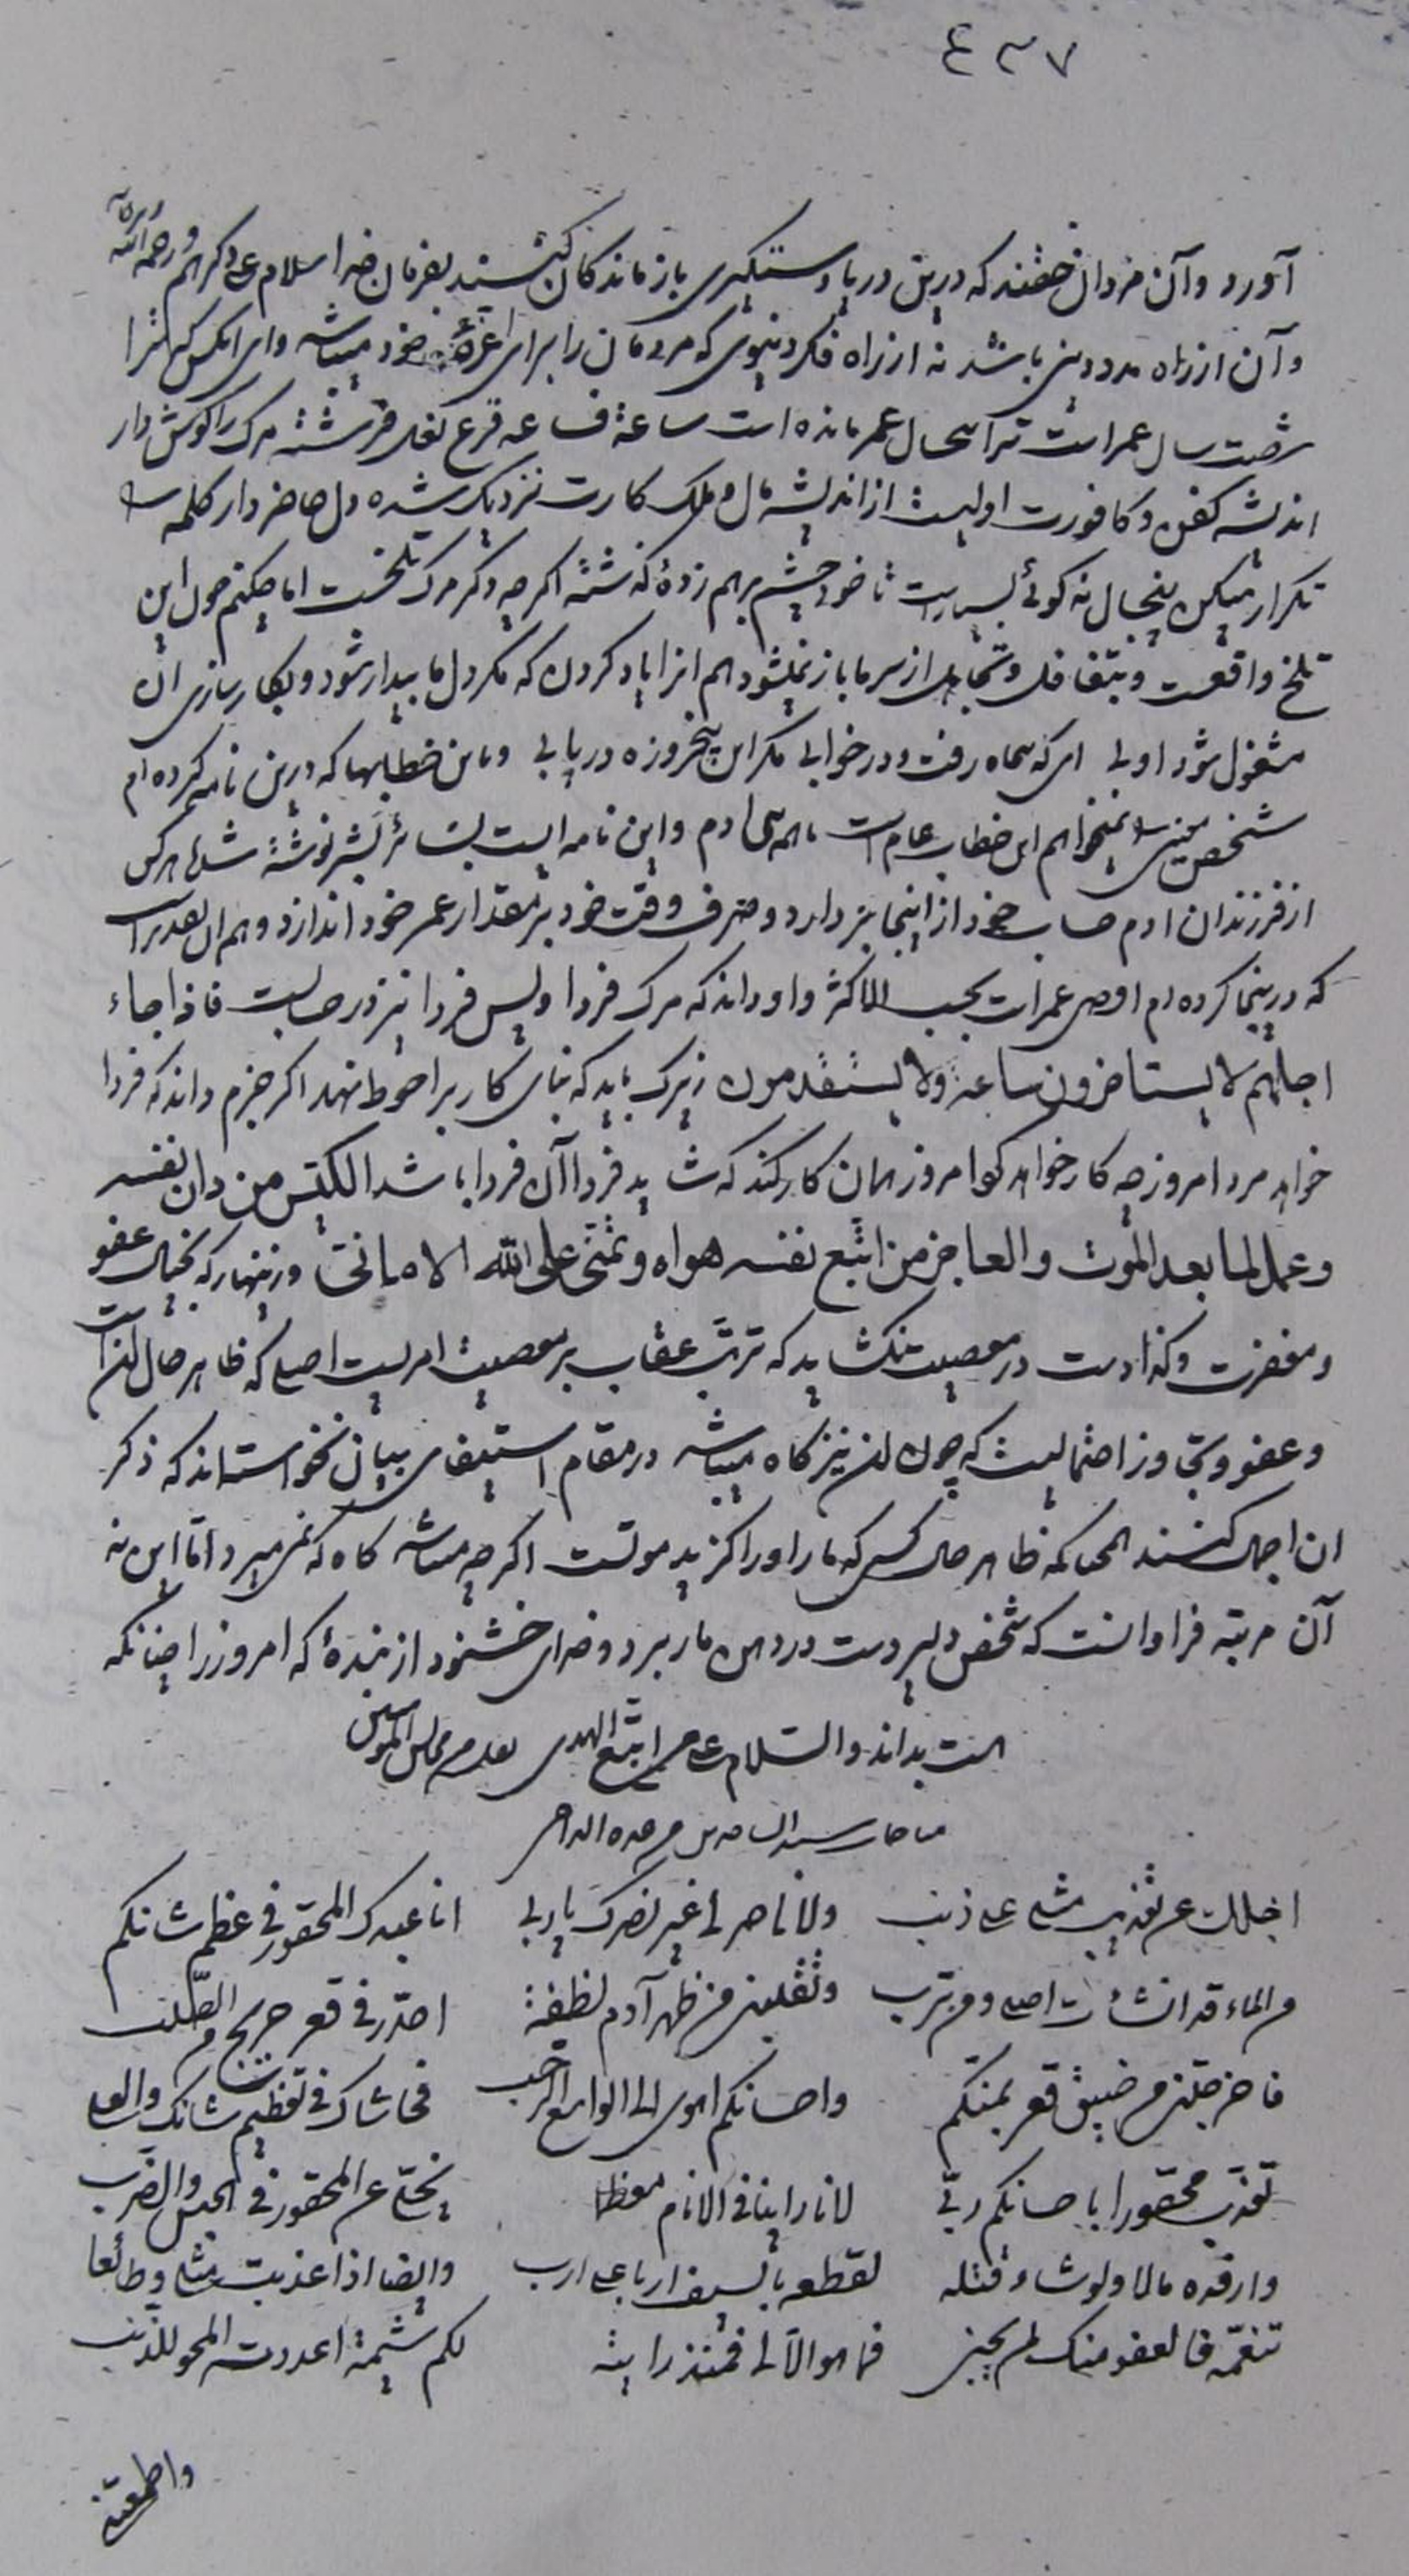 ٤٣٧
آورد وآن مردان خفتند که درین دریا دستگیری بازماندگان کنند بفرمان خدا سلام علی ذکراهم ورحمة الله
وآن از راه مدد دینی باشد نه از راه فکر دنیوی که مردمان را برای اعزّهٔ خود میباشد وای آنکس که ترا
شصت سال عمر است ترا سی سال عمر مانده است ساعة فساعه قرع نعل فرشته مرک را کوش دار
اندیشه کفن وکافورت اولیست از اندیشه مال وملک کارت نزدیک شده دل حاضر دار کلمه
تکرار میکن پنجسال نه کوئی بسیارست تا خود چشم برهم زدهٔ گذشته اگرچه ذکر مرک تلخست اما چکنم چون این
تلخ واقعست وبتغافل وتجاهل از سر ما باز نمیشود هم آنرا یاد کردن که مکر دل ما بیدار شود وبکارسازی آن
مشغول شود اولی ای که پنجاه رفت ودر خوابی مکر این پنجروزه دریابی ومن خطابها که درین نامه کرده‌ام
شخص معین را نمیخواهم این خطاب عام است با همه بنی آدم واین نامه ایست بسائر بشر نوشته شد تا هرکس
از فرزندان آدم حساب خود از اینجا بردارد وصرف وقت خود بر مقدار عمر خود اندازد
که درینجا کرده‌ام اقصی عمر است بحسب الاکثر واو داند که مرک فردا وپس فردا نیز در حسابست فاذا جاء
اجلهم لا یستأخرون ساعة ولا یستقدمون زیرک باید که بنای کار بر احوط نهد اگر جزم داند که فردا
خواهد مرد امروز چه کار خواهد کرد امروز همان کار کند که شاید فردا آن فردا باشد الکیّس من دان نفسه
وعمل لما بعد الموت والعاجز من اتّبع نفسه هواه وتمنّی علی الله الامانی وزینهار که بخیال عفو
ومغفرت وکذا دست در معصیت نکشاید که ترتّب عقاب بر معصیت امریست اصلی که ظاهر حال آنست
وعفو وتجاوز احتمالیست که چون آن نیز گاه میباشد در مقام استیفای بیان نخواسته‌اند که ذکر
آن اهمال کنند همچنانکه ظاهر حال کسی که مار او را گزید موتست اگرچه میباشد گاه که نمی‌میرد امّا این نه
آن مرتبه فراوانست که شخص دلیر دست در دهن مار برد وخدای خشنود از بندهٔ که امروز را چنانکه
هست بداند والسّلام علی من اتّبع الهدی نقل من مجالس المؤمنین
مناجات سید الساجدین
اجلک عن تعذیب مثلی علی ذنب ولا ناصر لی غیر نصرک یا ربی انا عبدک المحقور فی عظم شانکم
من الماء قد انشأت اصلی ومن ترب ونقلتنی من ظهر آدم نطفة احدّر فی قعر جریح من الصّلب
فاخرجتنی من ضیق قعر بمنّکم واحسانکم اهوی الی الواسع الرّحب فحاشاک فی تعظیم شانک والعلی
تعذّب محقورا باحسانکم ربّی لانا راینا فی الانام معظّما یخلّی عن المحقور فی الحبس والضّرب
وارفده مالا ولو شاء قتله لقطعه بالسیف اربا علی ارب وایضا اذا عذبت مثلی وطائعا
تنعّمه فالعفو منک لمن یجنی فما هو الّا لی فمنذ رایته لکم شیمة اعددته المحو للذّنب
واطمعتنی